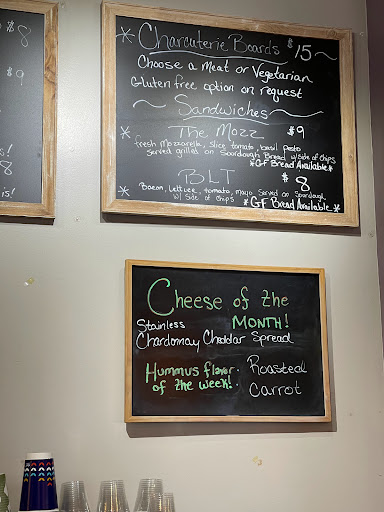 8
$9
8
is!
* Charcuterie Boards $15~
Choose a Meat or Vegetarian
Gluten free option on request
~ Sandwiches ~
* The Mozz $9
fresh Mozzarella, slice tomato, basil pesto
served grilled on Sourdough Bread w/side of chips
*GF Bread Available*
* BLT $8
Bacon, Lettuce, tomato, mayo Served on Sourdough
w/ Side of Chips *GF Bread Available*
Cheese of the
MONTH!
Stainless
Chardonnay Cheddar Spread
Hummus flavor: Roasted
of the week!: Carrot